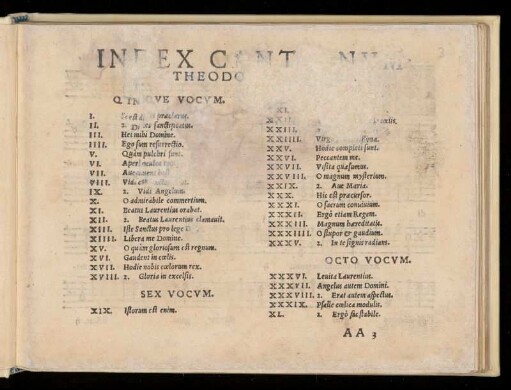 INDEX CANT NVM
THEODO
QVINQVE VOCVM.
I. præclarus.
II. 2. sanctificatum.
III. Hei mihi Domine.
IIII. Ego sum resurrectio.
V. Quàm pulchri sunt.
VI.
VII.
VIII.
IX. 2. Vidi Angelum.
X. O admirabile commertium.
XI. Beatus Laurentius orabat.
XII. 2. Beatus Laurentius clamauit.
XIII. Iste Sanctus pro lege D
XIIII. Libera me Domine.
XV. O quàm gloriosum est regnum.
XVI. Gaudent in cælis.
XVII. Hodie nobis cœlorum rex.
XVIII. 2. Gloria in excelsis.
SEX VOCVM.
XIX. Istorum est enim.
XXIII.
XXIIII.
XXV. Hodie completi sunt.
XXVI. Peccantem me.
XXVII. Vesita quæsumus.
XXVIII. O magnum mysterium.
XXIX. 2. Aue Maria.
XXX. Hic est præcursor.
XXXI. O sacrum conuiuium.
XXXII. Ergò etiam Regem.
XXXIII. Magnum hæreditatis.
XXXIIII. O stupor & gaudium.
XXXV. 2. In te signis radians.
OCTO VOCVM.
XXXVI. Leuita Laurentius.
XXXVII. Angelus autem Domini.
XXXVIII. 2. Erat autem aspectus.
XXXIX. Psalle cœlica modulis.
XL. 2. Ergò
AA 3